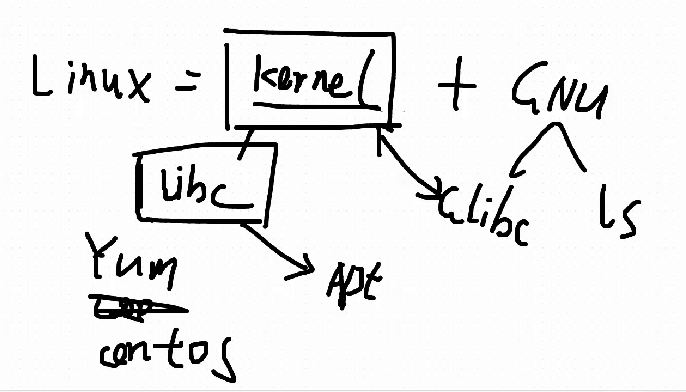 Linux = kernel + GNU
Libc
Glibc ls
Yum
Apt
centos